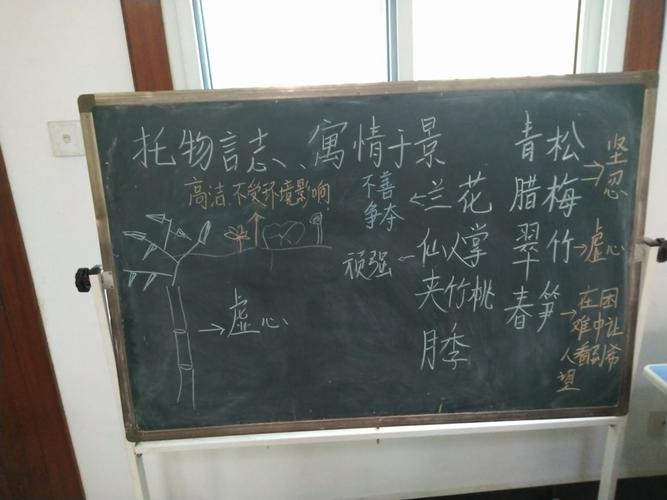 托物誌、寓情于景
高洁、不受环境影响
→虚心
不善
争夺
←兰花
顽强←仙人掌
夹竹桃
月季
青松→坚忍
腊梅
翠竹→虚心
春笋→在困
难中让
人看到希
望